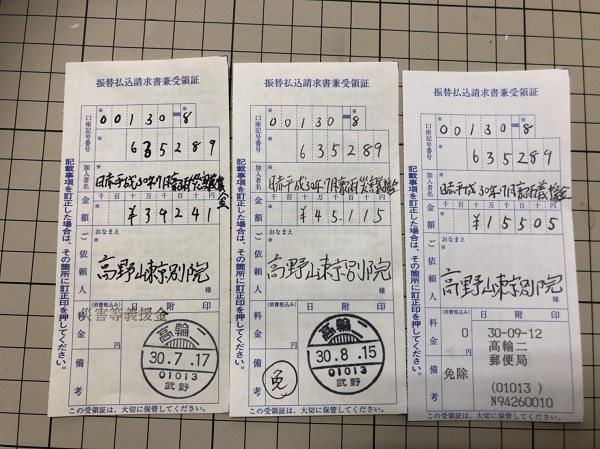 振替払込請求書兼受領証
口座記号番号
00130-8
635289
加入者名
日赤平成30年7月豪雨災害義援金
金額
千百十万千百十円
¥39241
ご依頼人
おなまえ
高野山東京別院
様
料金
(消費税込み)
日附印
災害等義援金
高輪二
30.7.17
01013
武野
備考
記載事項を訂正した場合は、その箇所に訂正印を押してください。
この受領証は、大切に保管してください。
振替払込請求書兼受領証
口座記号番号
00130-8
635289
加入者名
日赤平成30年7月豪雨災害義援金
金額
千百十万千百十円
¥45115
ご依頼人
おなまえ
高野山東京別院
様
料金
(消費税込み)
日附印
高輪二
30.8.15
01013
武野
備考
免
記載事項を訂正した場合は、その箇所に訂正印を押してください。
この受領証は、大切に保管してください。
振替払込請求書兼受領証
口座記号番号
00130-8
635289
加入者名
日赤平成30年7月豪雨義援金
金額
千百十万千百十円
¥15505
ご依頼人
おなまえ
高野山東京別院
様
料金
(消費税込み)
0円
日附印
30-09-12
高輪二
郵便局
備考
免除
(01013)
N94260010
記載事項を訂正した場合は、その箇所に訂正印を押してください。
この受領証は、大切に保管してください。